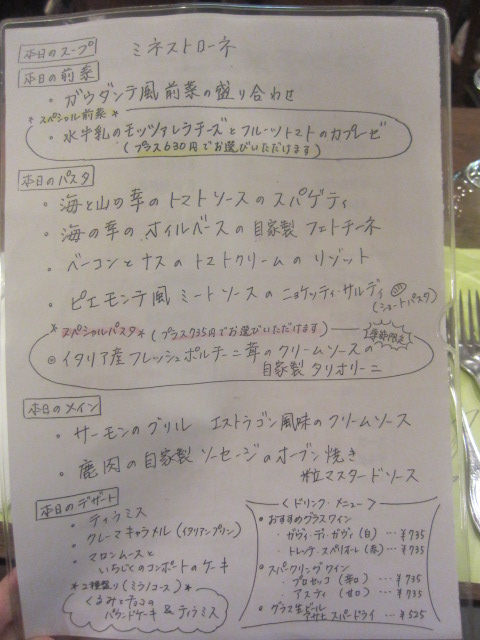 本日のスープ ミネストローネ
本日の前菜
・ガウダンテ風前菜の盛り合わせ
* スペシャル前菜 *
・水牛乳のモッツァレラチーズとフルーツトマトのカプレーゼ
(プラス630円でお選びいただけます)
本日のパスタ
・海と山の幸のトマトソースのスパゲティ
・海の幸のオイルベースの自家製フェトチーネ
・ベーコンとナスのトマトクリームのリゾット
・ピエモンテ風ミートソースのニョケッティ・サルディ
(ショートパスタ)
*スペシャルパスタ* (プラス735円でお選びいただけます) 季節限定
◎イタリア産フレッシュポルチーニ茸のクリームソースの
自家製タリオリーニ
本日のメイン
・サーモンのグリル エストラゴン風味のクリームソース
・鹿肉の自家製ソーセージのオーブン焼き
粒マスタードソース
本日のデザート
・ティラミス
・クレーマキャラメル(イタリアンプリン)
・マロンムースと
いちじくのコンポートのケーキ
*2種盛り(ミラノコース)
くるみとチョコの
パウンドケーキ & ティラミス
<ドリンク・メニュー>
・おすすめグラスワイン
・ガヴィ・ディ・ガヴィ(白)…¥735
・トレッケ・スペリオーレ(赤)…¥735
・スパークリングワイン
・プロセッコ(辛口)…¥735
・アスティ(甘口)…¥735
・グラス生ビール
アサヒスーパードライ…¥525